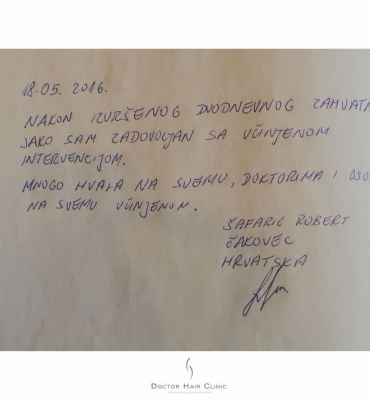 18.05. 2016.
NAKON IZVRŠENOG DVODNEVNOG ZAHVATA
JAKO SAM ZADOVOLJAN SA UČINJENOM
INTERVENCIJOM.
MNOGO HVALA NA SVEMU, DOKTORIMA I OSO
NA SVEMU UČINJENOM.
ŠAFARIĆ ROBERT
ČAKOVEC
HRVATSKA
DOCTOR HAIR CLINIC